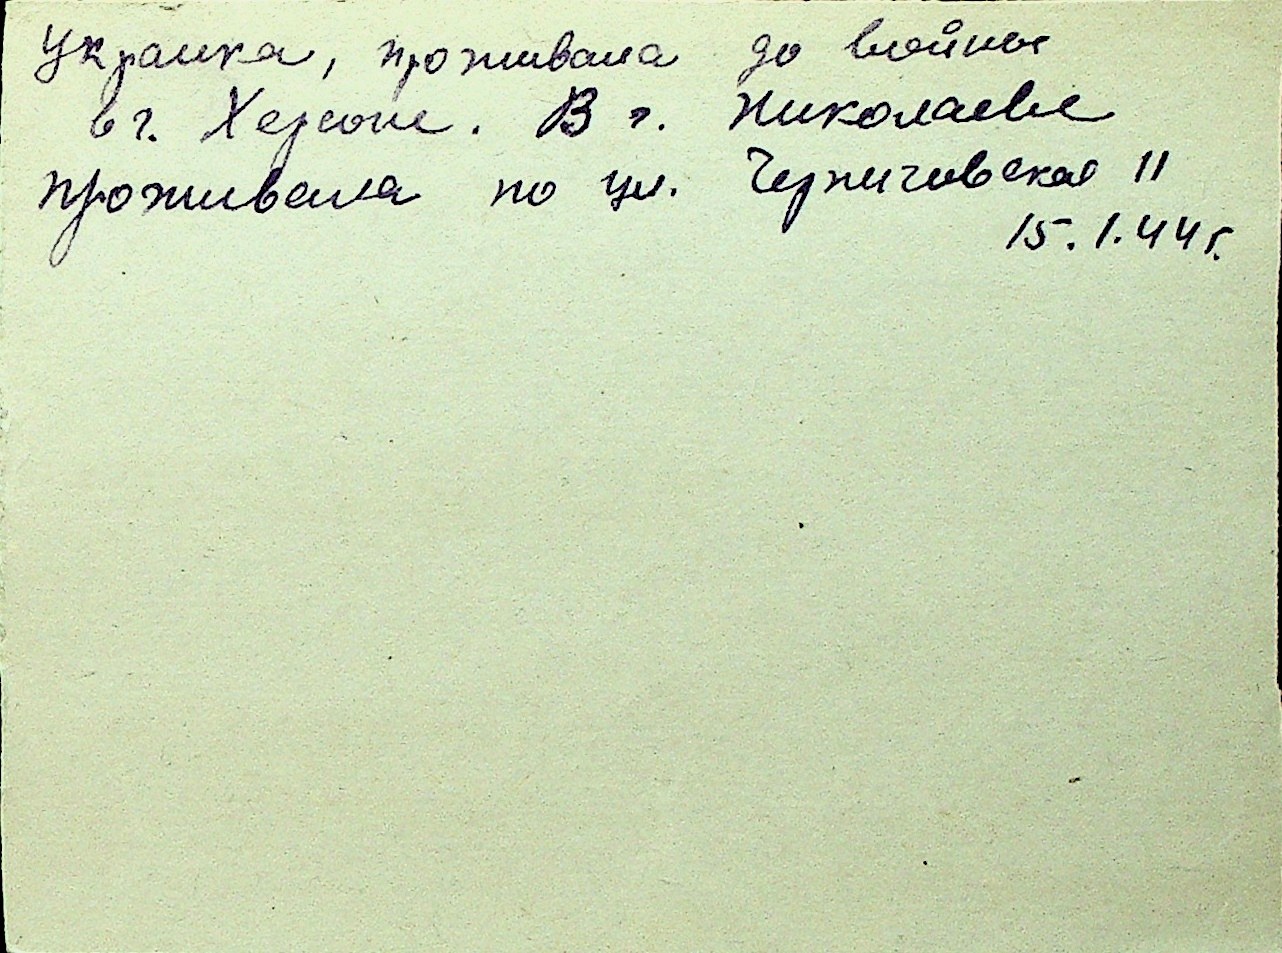 Украинка, проживала до войны
в г. Херсоне. В г. Николаеве
проживала по ул. Черниговская 11
15.1.44 г.